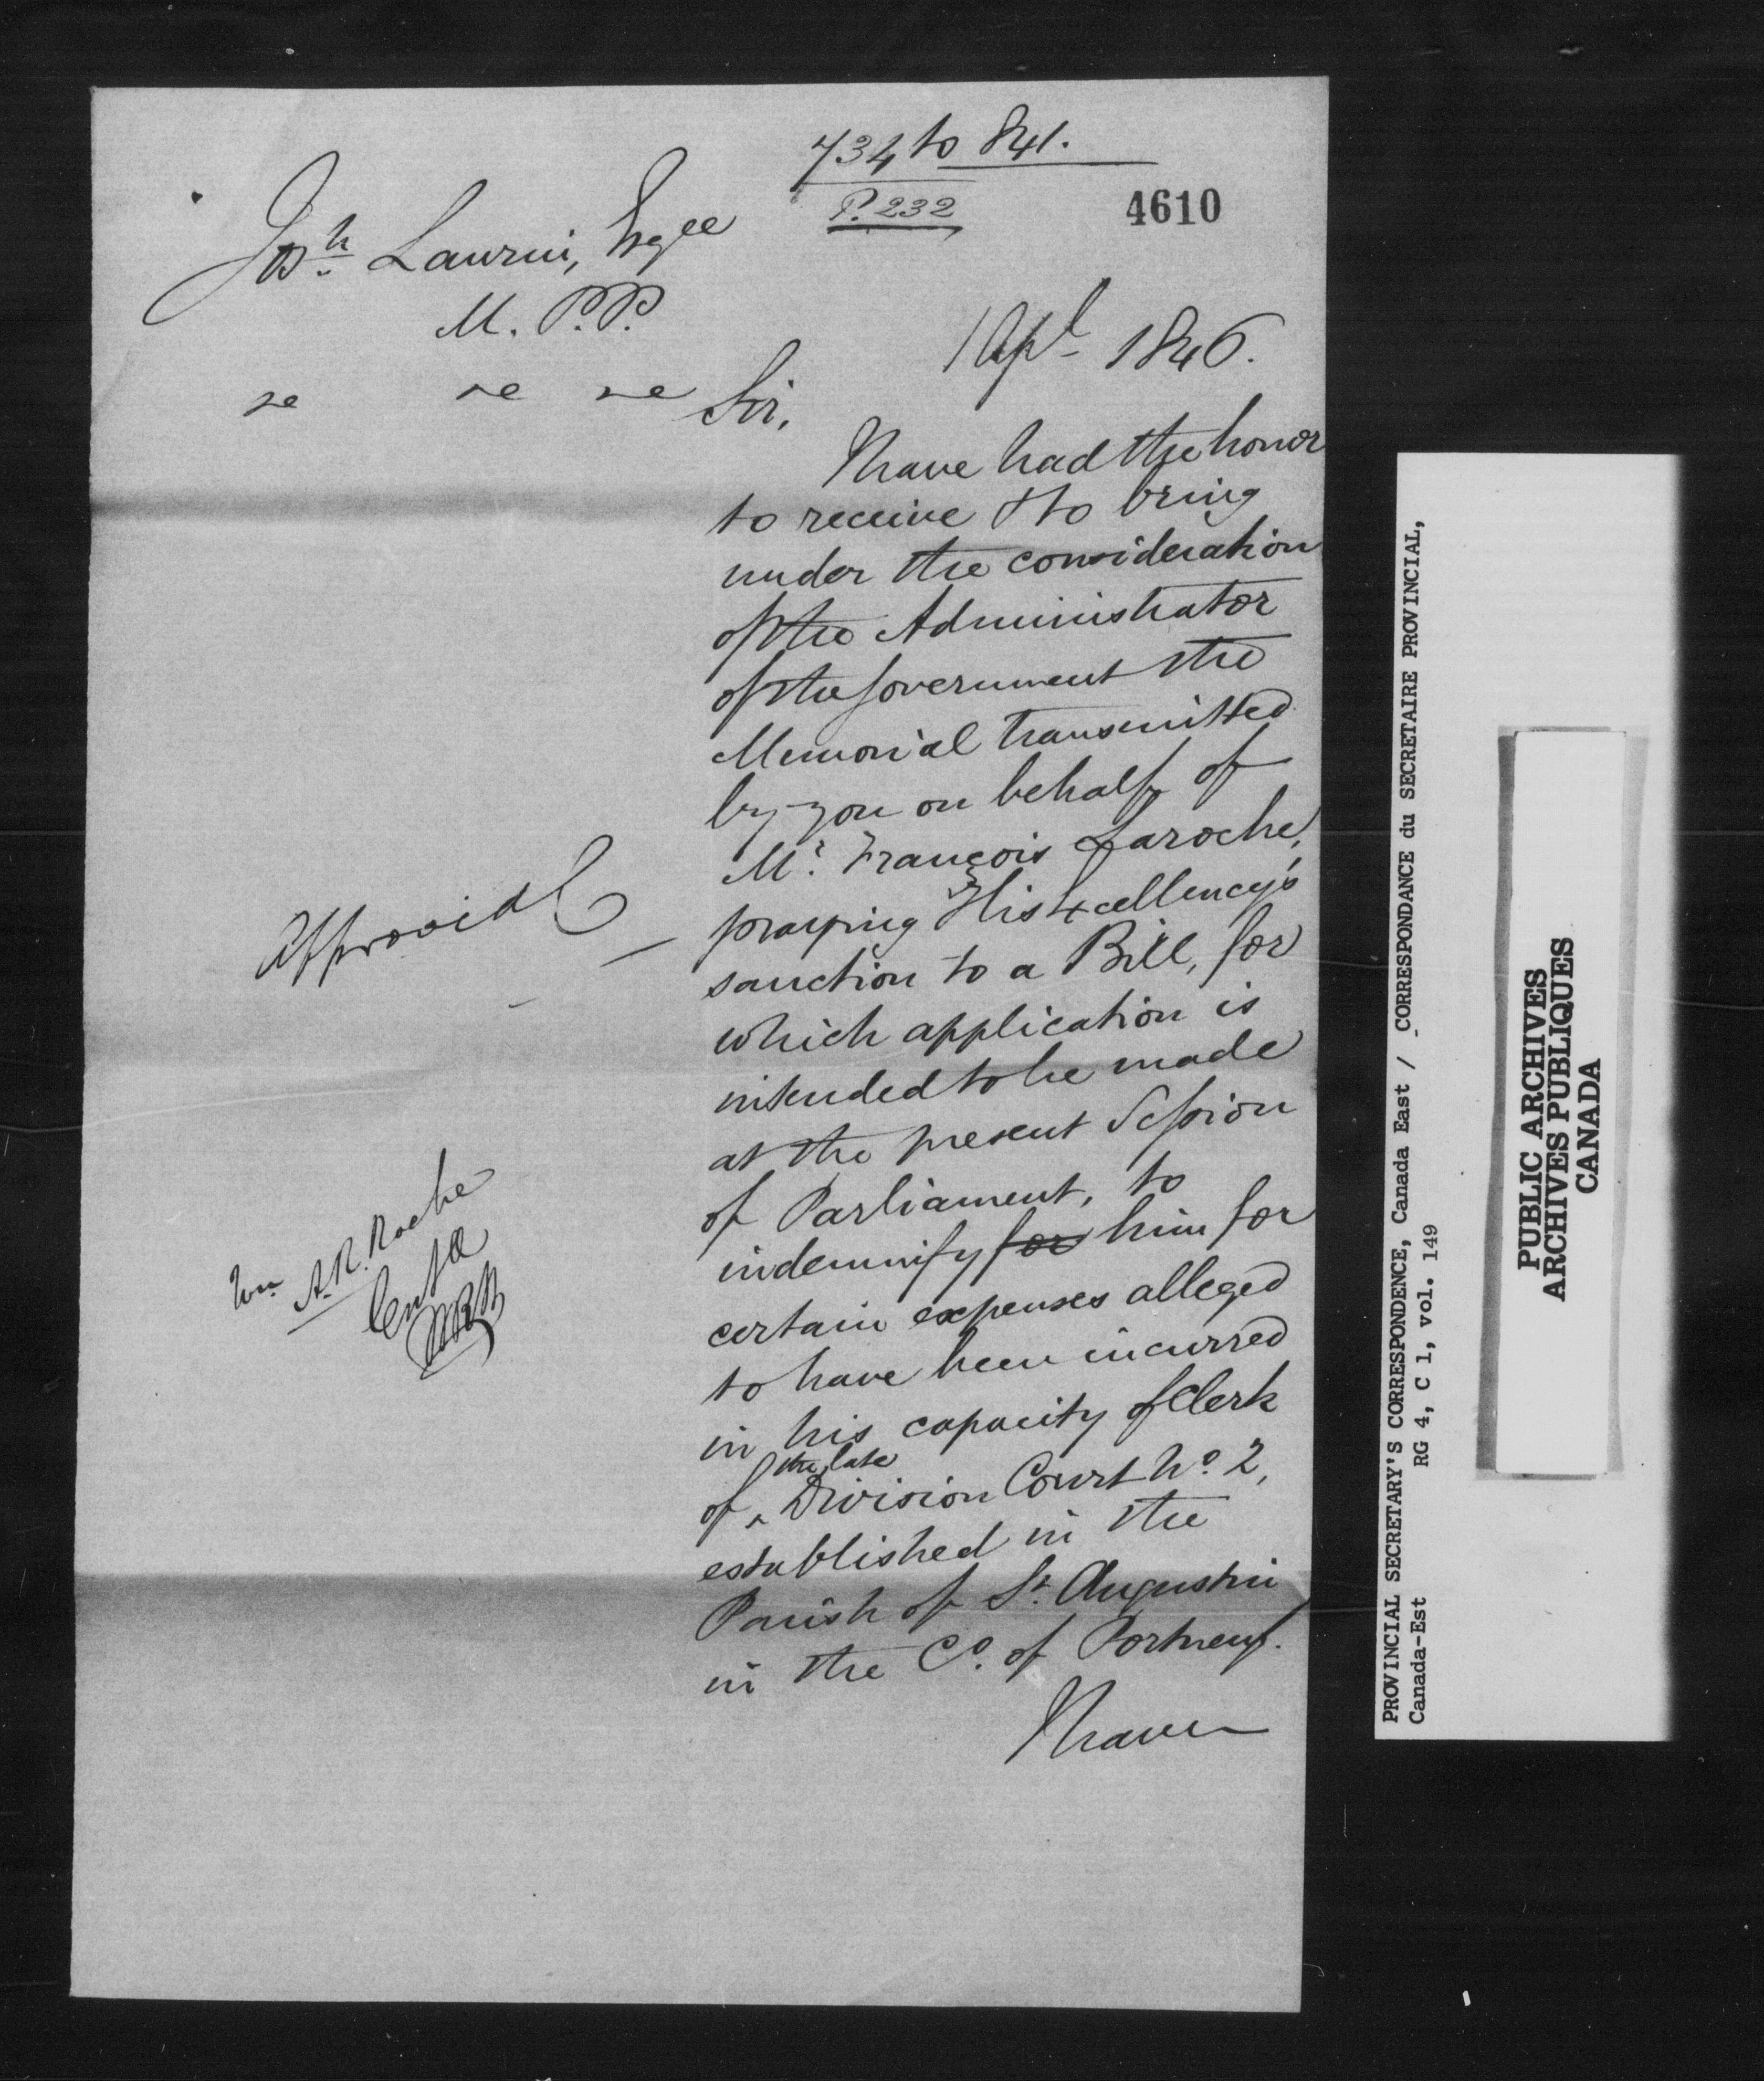 734 to 841.
P. 232
4610
Josh Laurin, Esqre
M. P.P.
1 Apl 1846.
Sir,
I have had the honor
to receive & to bring
under the consideration
of the Administrator
of the Government the
Memorial transmitted
by you on behalf of
Mr. François Laroche,
praying His Excellency's
sanction to a Bill, for
which application is
intended to be made
at the present Session
of Parliament, to
indemnify for him for
certain expenses alleged
to have been incurred
in his capacity of Clerk
of the late Division Court No. 2,
established in the
Parish of St. Augustin
in the Co. of Portneuf.
I have
Approved
Wm
A. R. Roche
PROVINCIAL SECRETARY'S CORRESPONDENCE, Canada East / CORRESPONDANCE du SECRETAIRE PROVINCIAL,
Canada-Est RG 4, C 1, vol. 149
PUBLIC ARCHIVES
ARCHIVES PUBLIQUES
CANADA